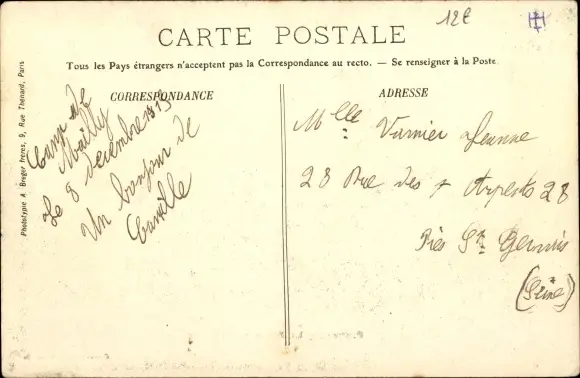 12€
CARTE POSTALE
Tous les Pays étrangers n'acceptent pas la Correspondance au recto. — Se renseigner à la Poste
CORRESPONDANCE
Camp de
Mailly
Le 8 décembre 1913
Un bonjour de
Camille
ADRESSE
Mlle Varnier Jeanne
28 Rue des 7 Arpents 28
Près St Gervais
(Seine)
Phototypie A. Breger Frères, 9, Rue Thénard, Paris